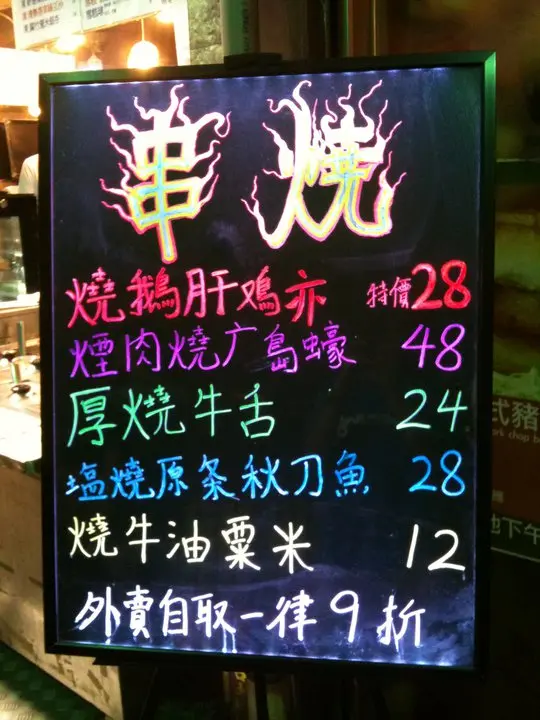 串燒
燒鵝肝鳮亦 特價28
煙肉燒广島蠔 48
厚燒牛舌 24
塩燒原条秋刀魚 28
燒牛油粟米 12
外賣自取一律9折
式豬
rk chop b
地下午